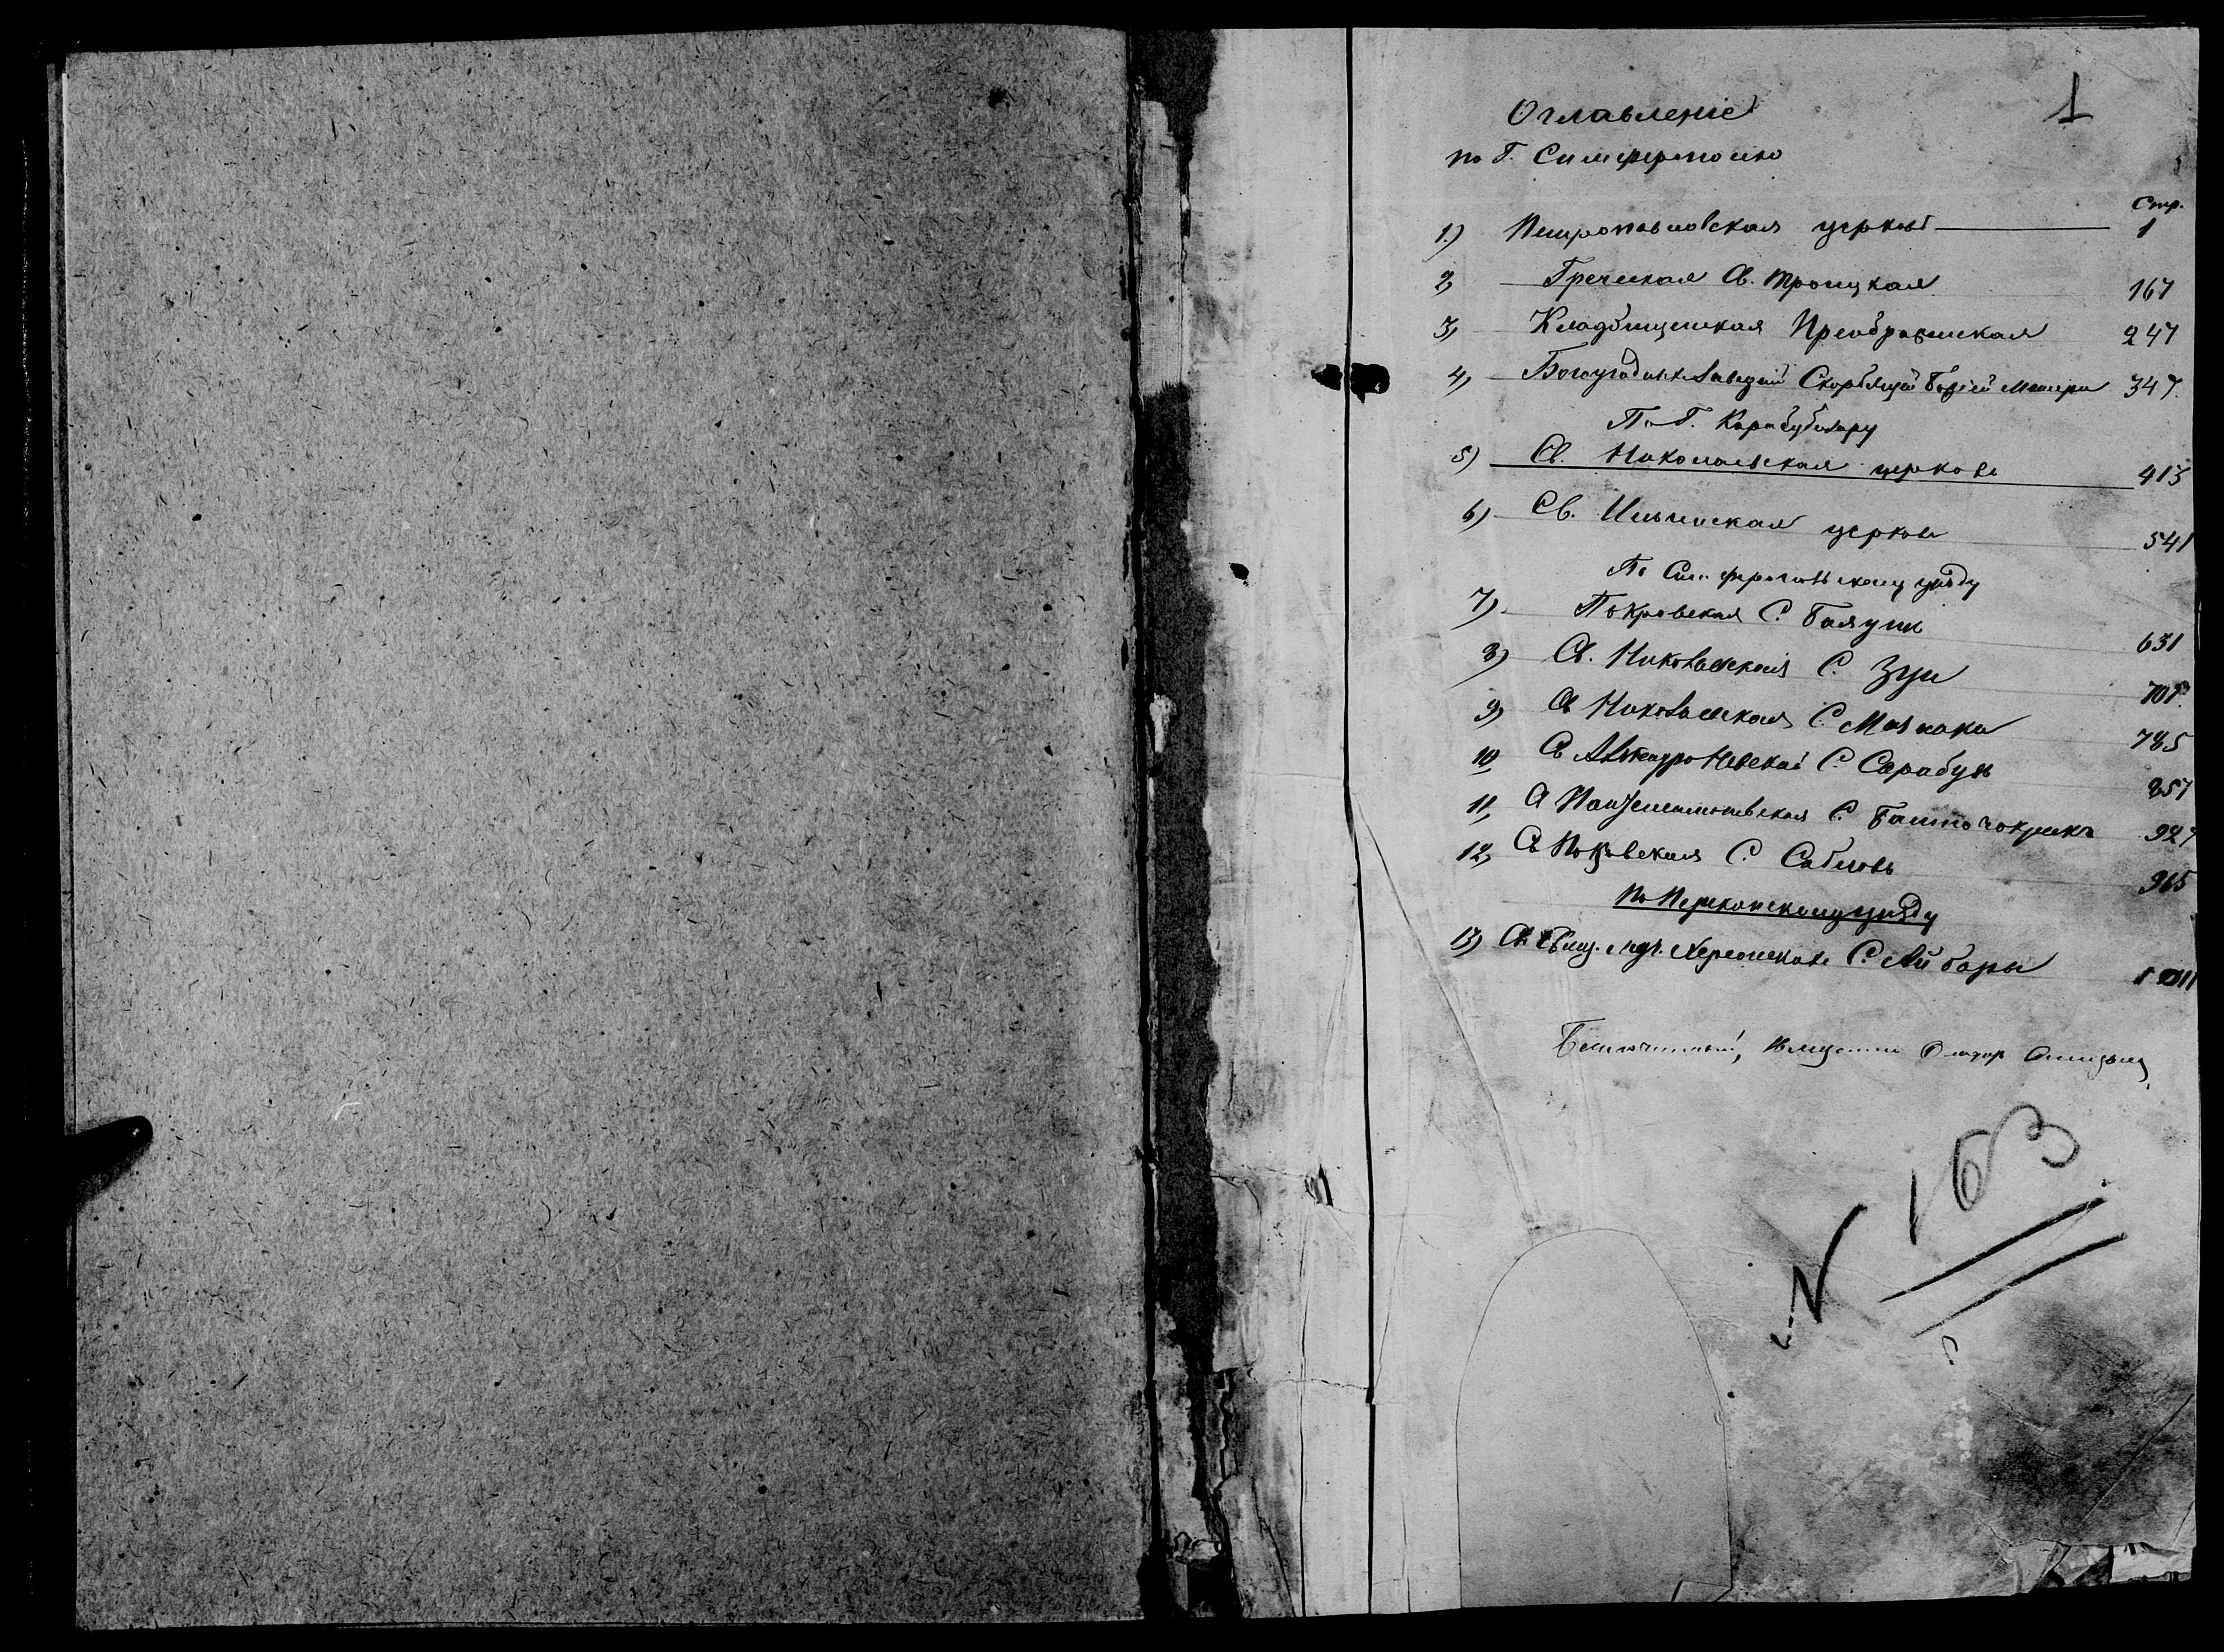 1
Оглавленіе
по Г. Симферополю
Стр.
1.) Петропавловская церковь 1
2, Греческая Св. Троицкая 167
3, Кладбищенская Преображенская 247
4, Богоугодныхъ Заведеній Скорбящей Божіей Матери 347.
По Г. Карасубазару
5) Св. Николаевская церковь 413
6) Св. Ильинская церковь 541
По Симферопольскому уѣзду
7) Покровская С. 631
8) Св. Николаевская С. Зуи 707
9) Св Николаевская С. Мазанки 785
10, Св Александро Невская С. Сарабузъ 857
11, Св Пантелеимоновская С. 927
12, Св Покровская С. Сабловъ 965
По Перекопскому уѣзду
13) Св. Свящ. муч. Херсонскихъ С. Айбары 1011
N 163